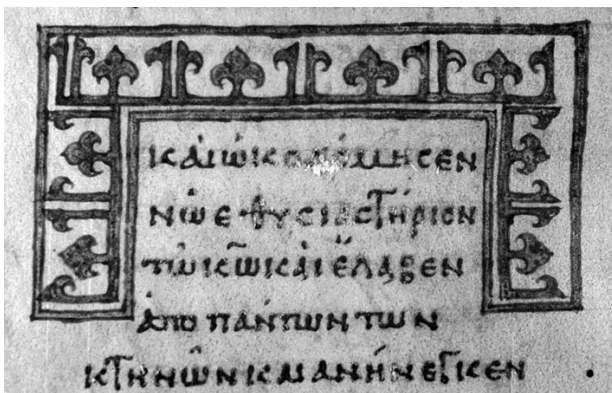 καὶ ὠκοδόμησεν
νῶε θυσιαστήριον
τῶ κ̅ω̅ καὶ ἔλαβεν
ἀπὸ πάντων τῶν
κτηνῶν καὶ ἀνήνεγκεν